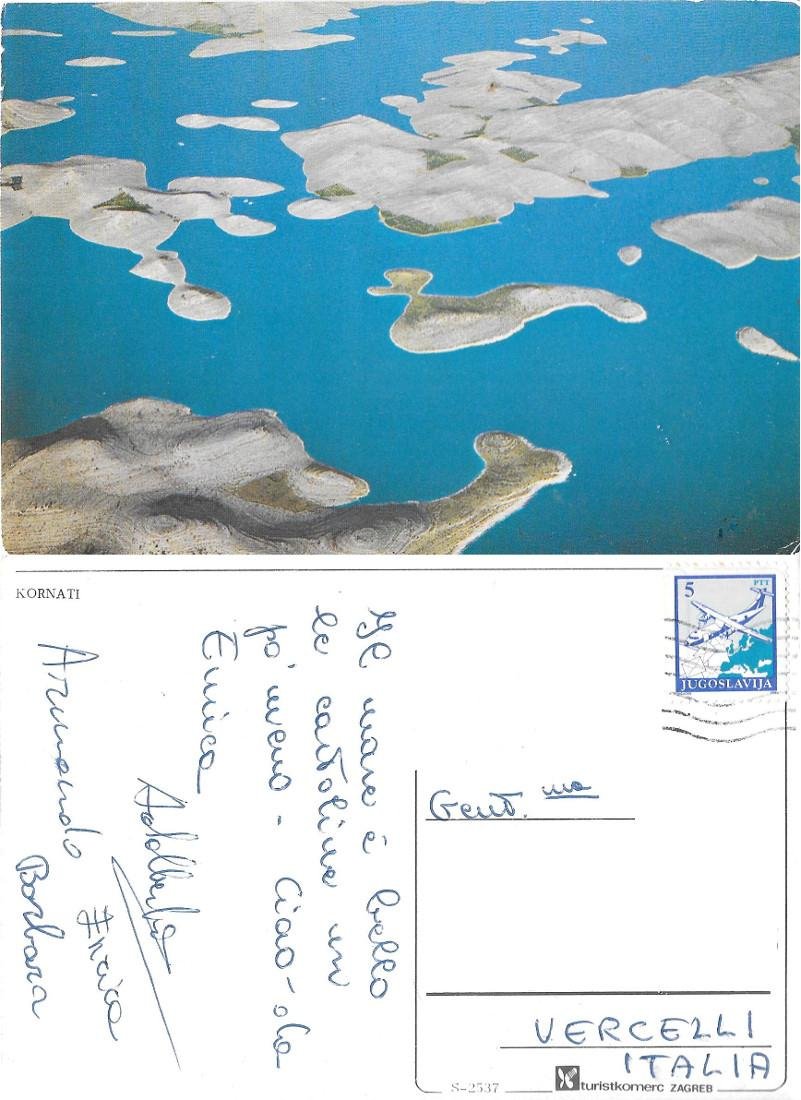 KORNATI
Il mare è bello
le cartoline un
po' meno - Ciao - da
Enrica
Adalberto
Armando
Enrica
Barbara
5
PTT
JUGOSLAVIJA
Gent.ma
VERCELLI
ITALIA
S-2537
turistkomerc ZAGREB